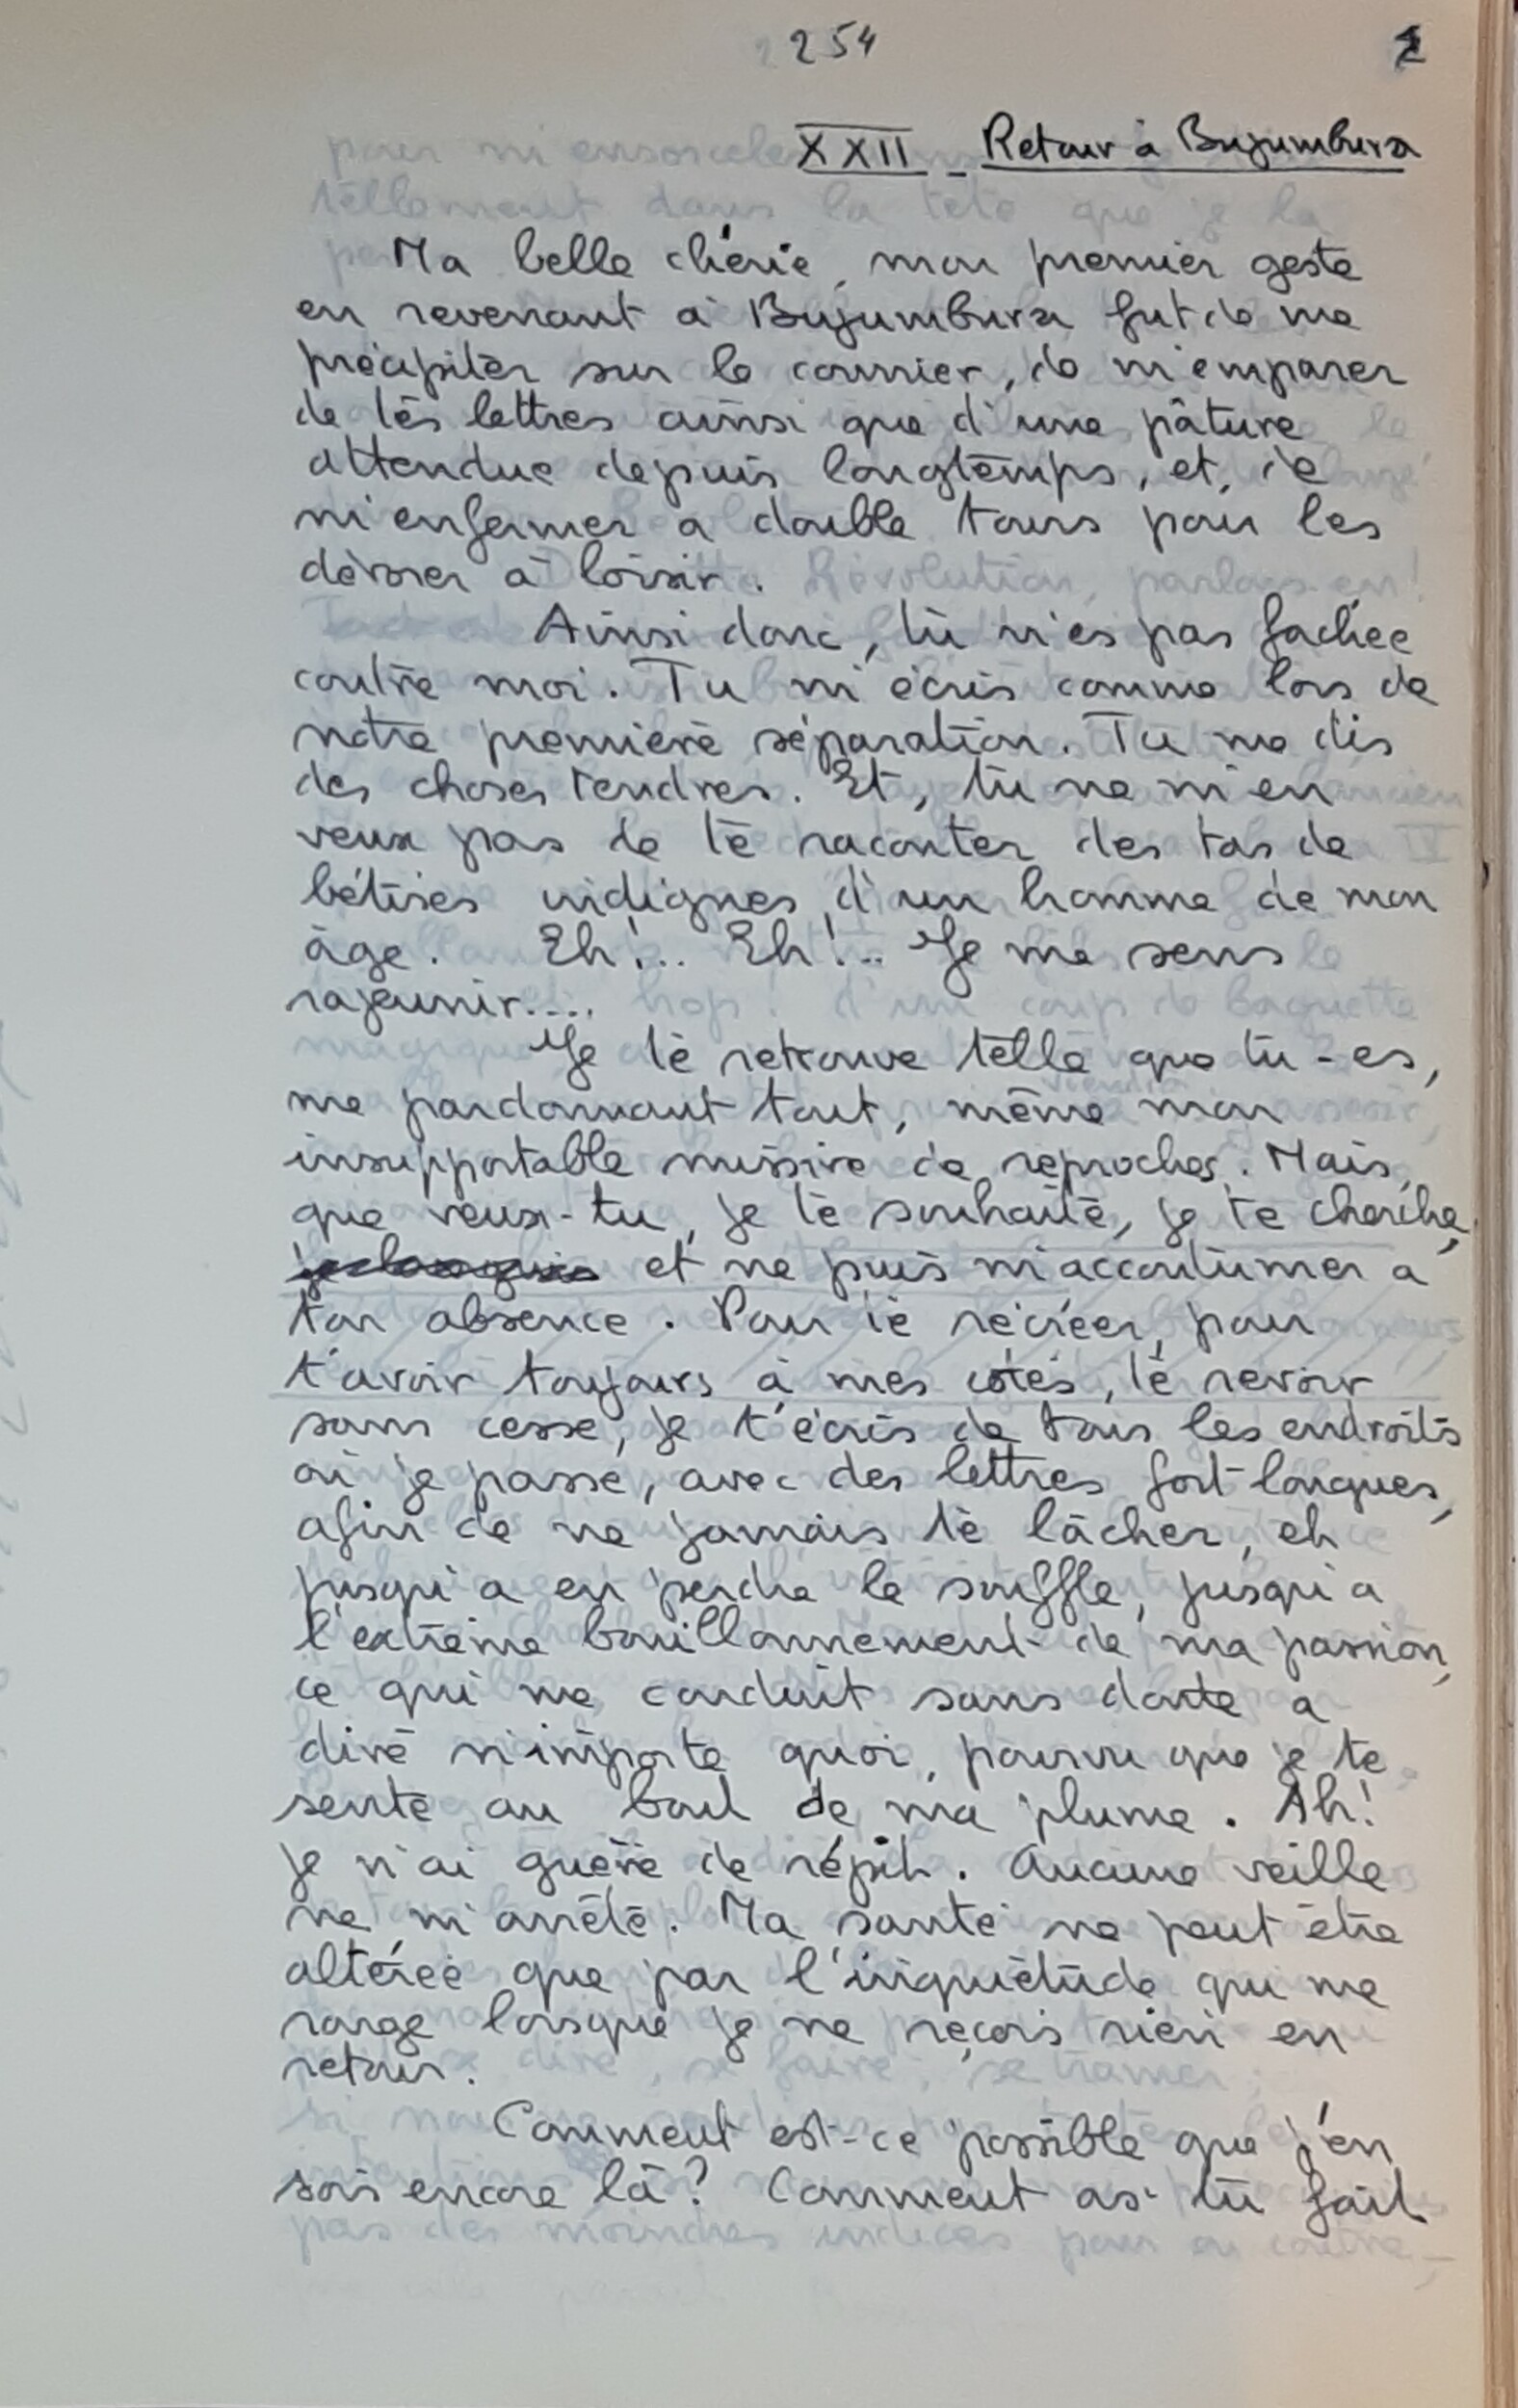 254
XXII - Retour à Bujumbura
Ma belle chérie, mon premier geste
en revenant à Bujumbura fut de me
précipiter sur le courrier, de m'emparer
de tes lettres ainsi que d'une pâture
attendue depuis longtemps, et, de
m'enfermer a double tours pour les
dévorer à loisir.
Ainsi donc, tu n'es pas fachée
contre moi. Tu m'écris comme lors de
notre première séparation. Tu me dis
des choses tendres. Et, tu ne m'en
veux pas de te raconter des tas de
bêtises indignes d'un homme de mon
âge. Eh!.. Eh!.. Je me sens
rajeunir....
Je te retrouve telle que tu-es,
me pardonnant tout, même mon
insupportable missive de reproches. Mais,
que veux-tu, je te souhaite, je te cherche,
et ne puis m'accoutumer a
ton absence. Pour te récréer, pour
t'avoir toujours à mes côtés, te revoir
sans cesse, je t'écris de tous les endroits
où je passe, avec des lettres fort-longues,
afin de ne jamais te lâcher, et
jusqu'a en perdre le souffle, jusqu'a
l'extrême bouillonnement de ma passion,
ce qui me conduit sans doute a
dire n'importe quoi, pourvu que je te
sente au bout de ma plume. Ah!
je n'ai guère de répit. Aucune veille
ne m'arrête. Ma santé ne peut être
altérée que par l'inquiétude qui me
ronge lorsque je ne reçois rien en
retour.
Comment est-ce possible que j'en
sois encore là? Comment as-tu fait